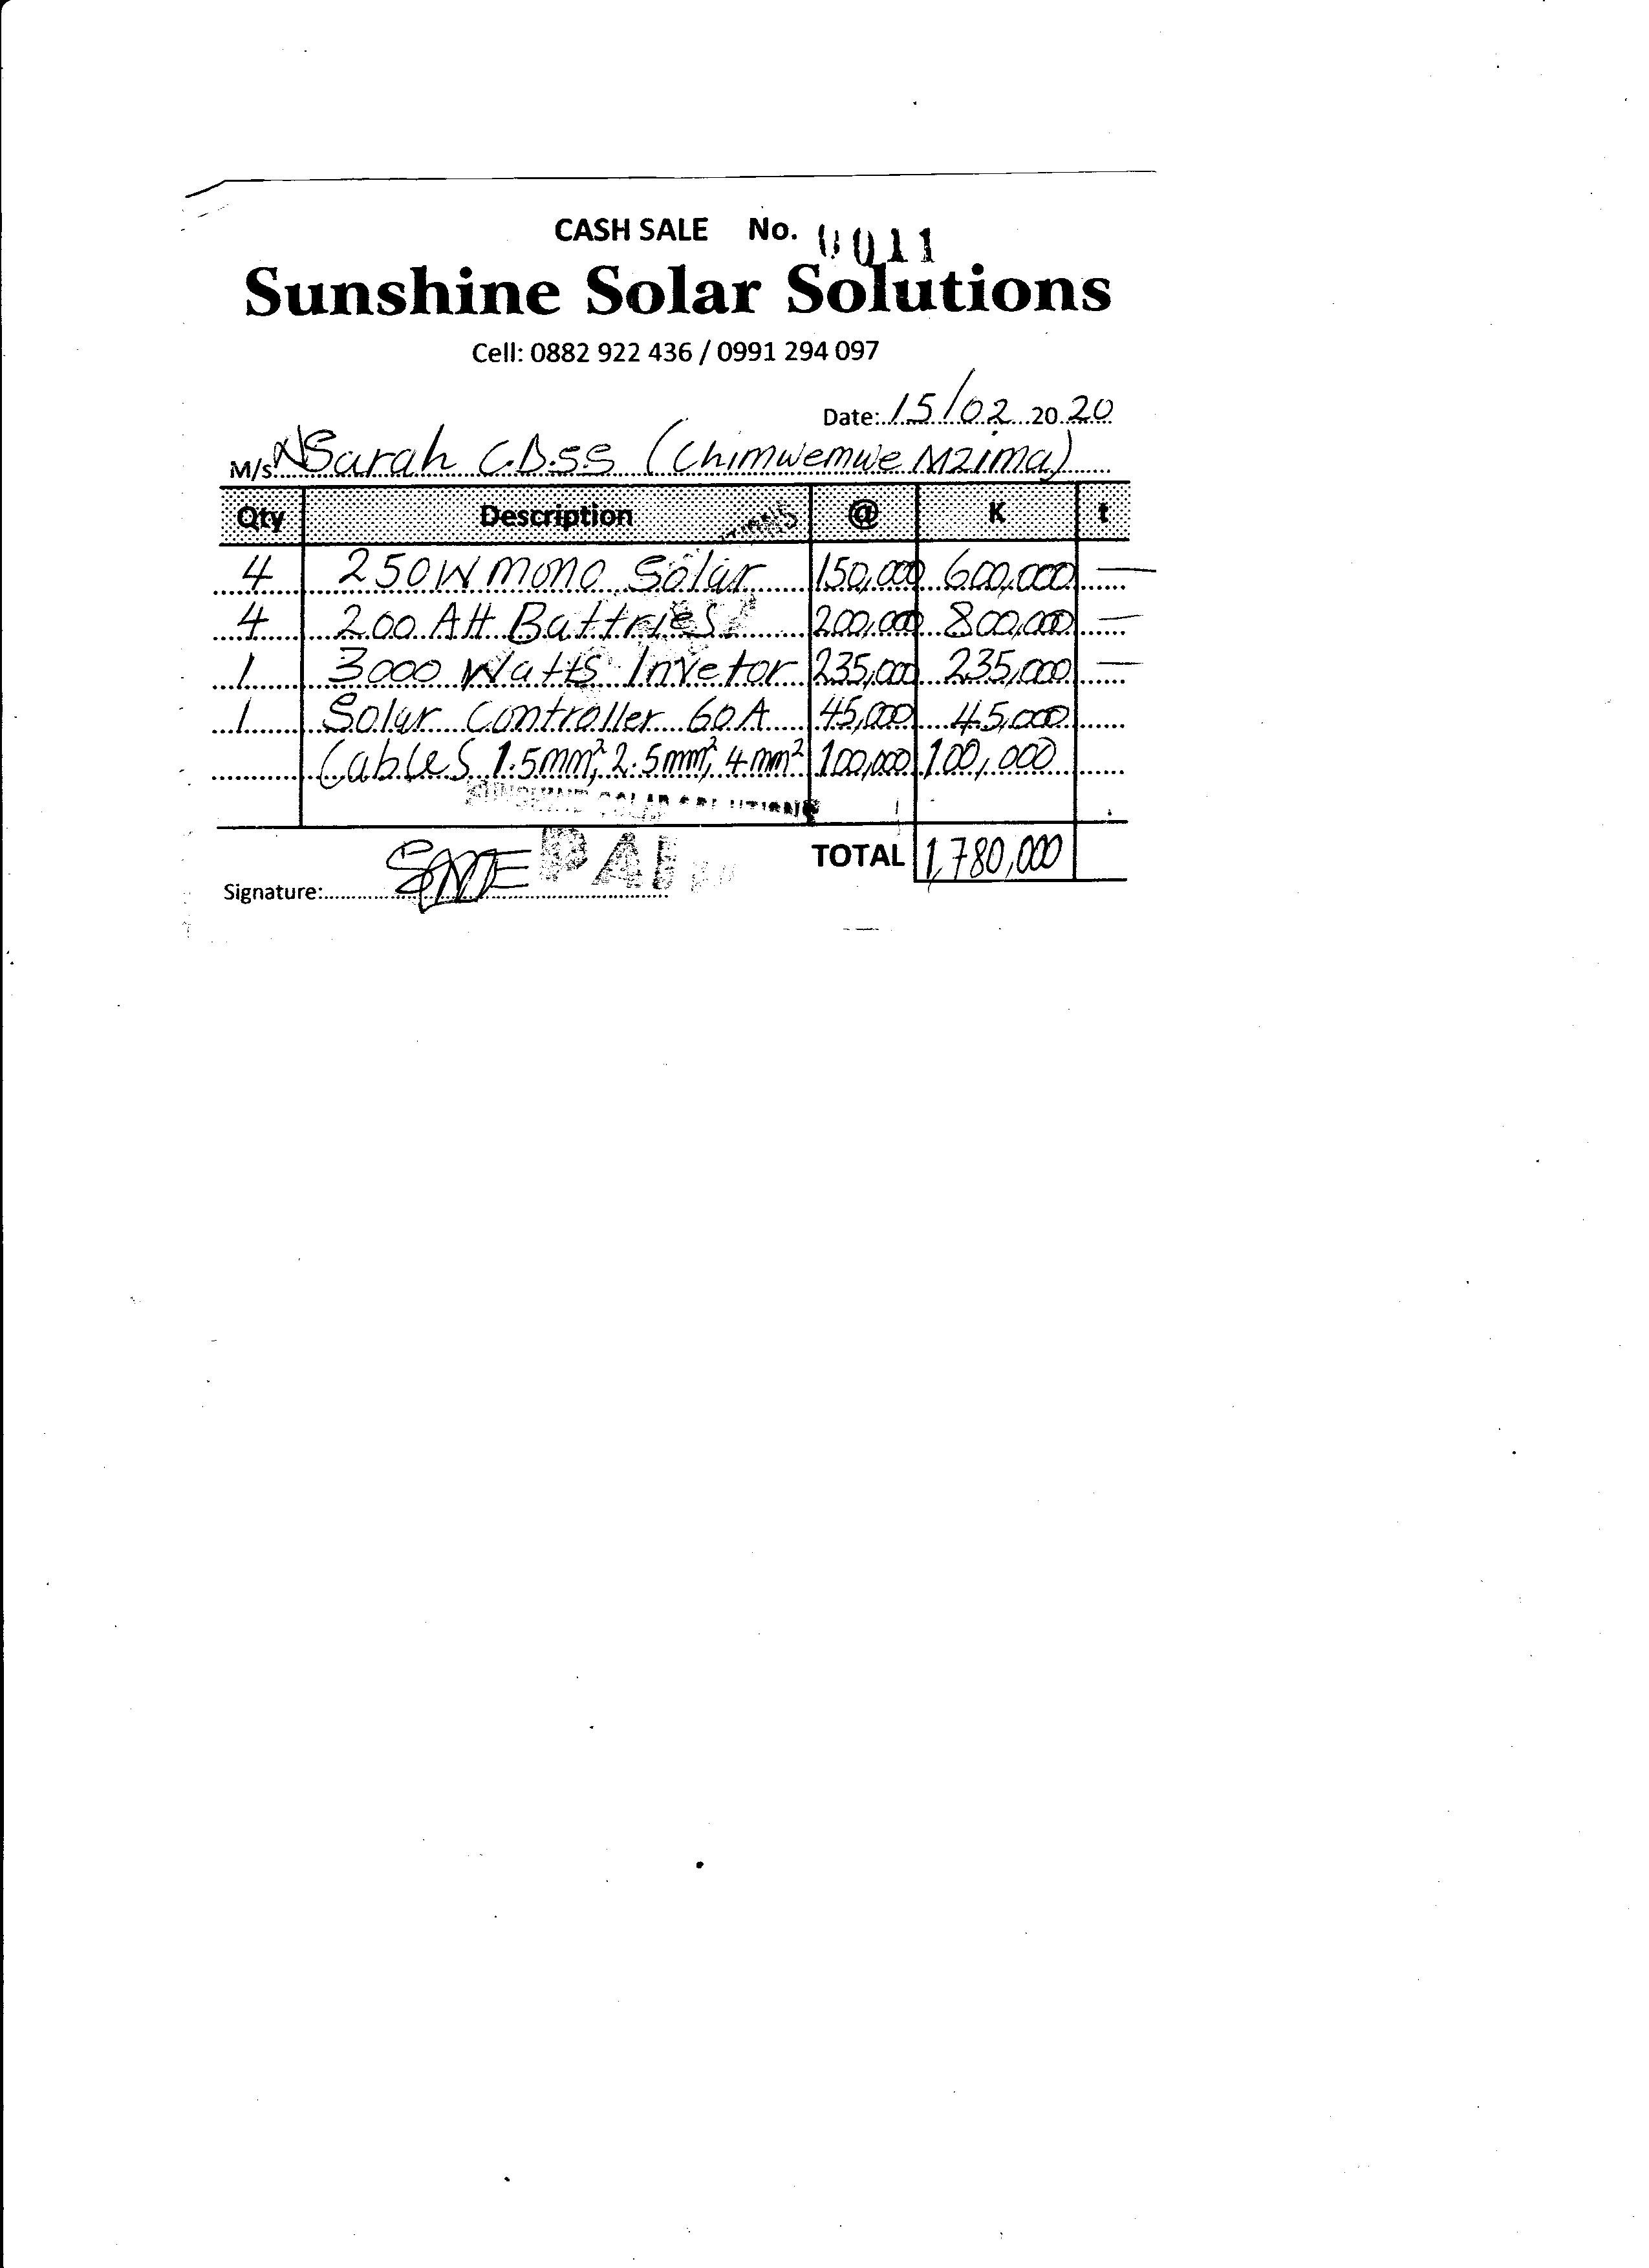 CASH SALE No. 0011
Sunshine Solar Solutions
Cell: 0882 922 436 / 0991 294 097
Date: 15/02 2020
M/s Sarah C.D.S.S (Chimwemwe Mzima)
Qty Description @ K t
4 250W mono Solar 150,000 600,000 —
4 200 AH Battries 200,000 800,000 —
1 3000 Watts Invetor 235,000 235,000 —
1 Solar Controller 60A 45,000 45,000
Cables 1.5mm², 2.5mm², 4mm² 100,000 100,000
SUNSHINE SOLAR SOLUTIONS
TOTAL 1,780,000
Signature: